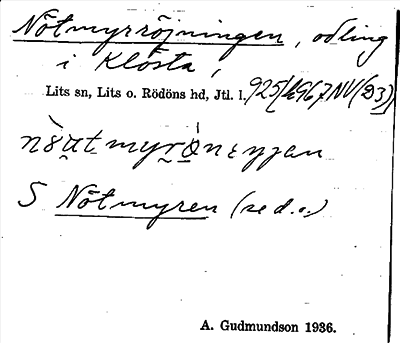 Nötmyrröjningen, odling
i Klösta,
Lits sn, Lits o. Rödöns hd, Jtl. l. 925/2967NV(D3)
S Nötmyren (se d.o.)
A. Gudmundson 1936.